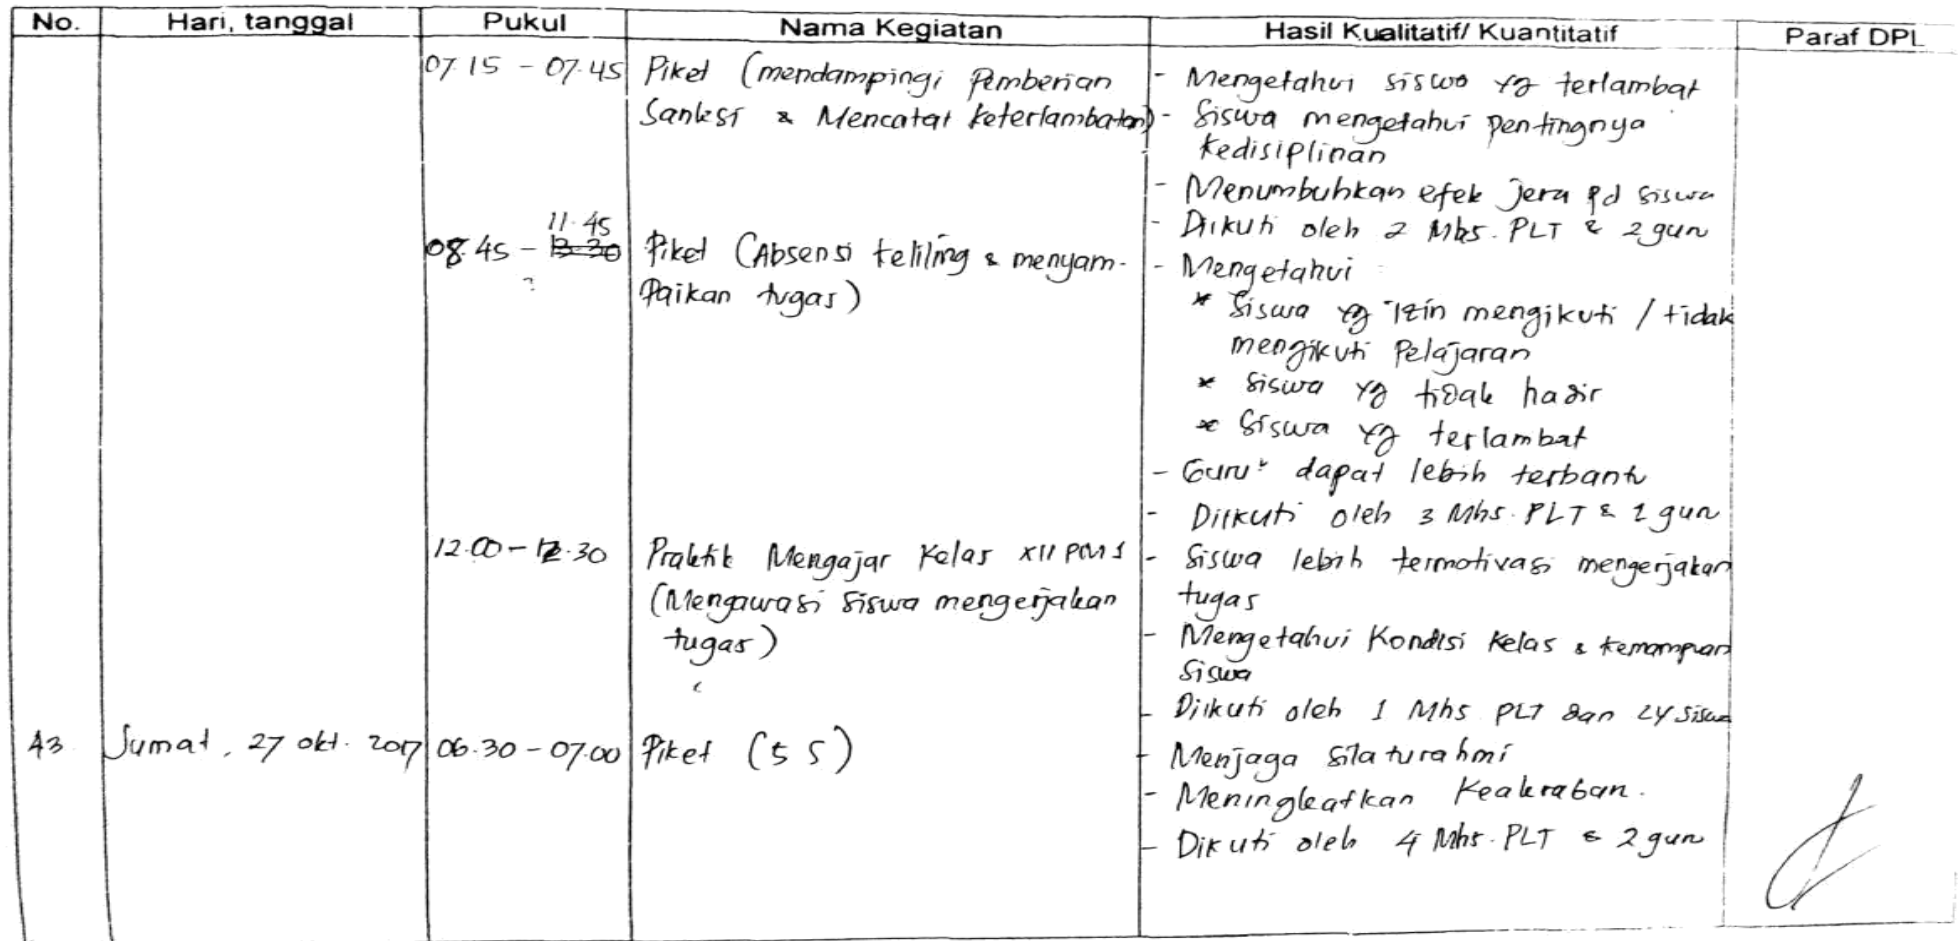 No. Hari, tanggal Pukul Nama Kegiatan Hasil Kualitatif/ Kuantitatif Paraf DPL
07.15 - 07.45 Piket (mendampingi Pemberian - Mengetahui siswa yg terlambat
Sanksi & Mencatat keterlambatan) - Siswa mengetahui pentingnya
kedisiplinan
- Menumbuhkan efek jera pd siswa
11.45 - Diikuti oleh 2 Mhs. PLT & 2 guru
08.45 - 13.30 Piket (Absensi keliling & menyam- - Mengetahui
paikan tugas) * Siswa yg izin mengikuti / tidak
mengikuti Pelajaran
* siswa yg tidak hadir
* Siswa yg terlambat
- Guru² dapat lebih terbantu
- Diikuti oleh 3 Mhs. PLT & 1 guru
12.00 - 12.30 Praktik Mengajar Kelas XII PM 1 - Siswa lebih termotivasi mengerjakan
(Mengawasi Siswa mengerjakan tugas
tugas) - Mengetahui Kondisi Kelas & kemampuan
Siswa
- Diikuti oleh 1 Mhs PLT dan 24 siswa
43. Jumat, 27 okt. 2017 06.30 - 07.00 Piket (5 S) - Menjaga Silaturahmi
- Meningkatkan Keakraban.
- Dikuti oleh 4 Mhs. PLT & 2 guru